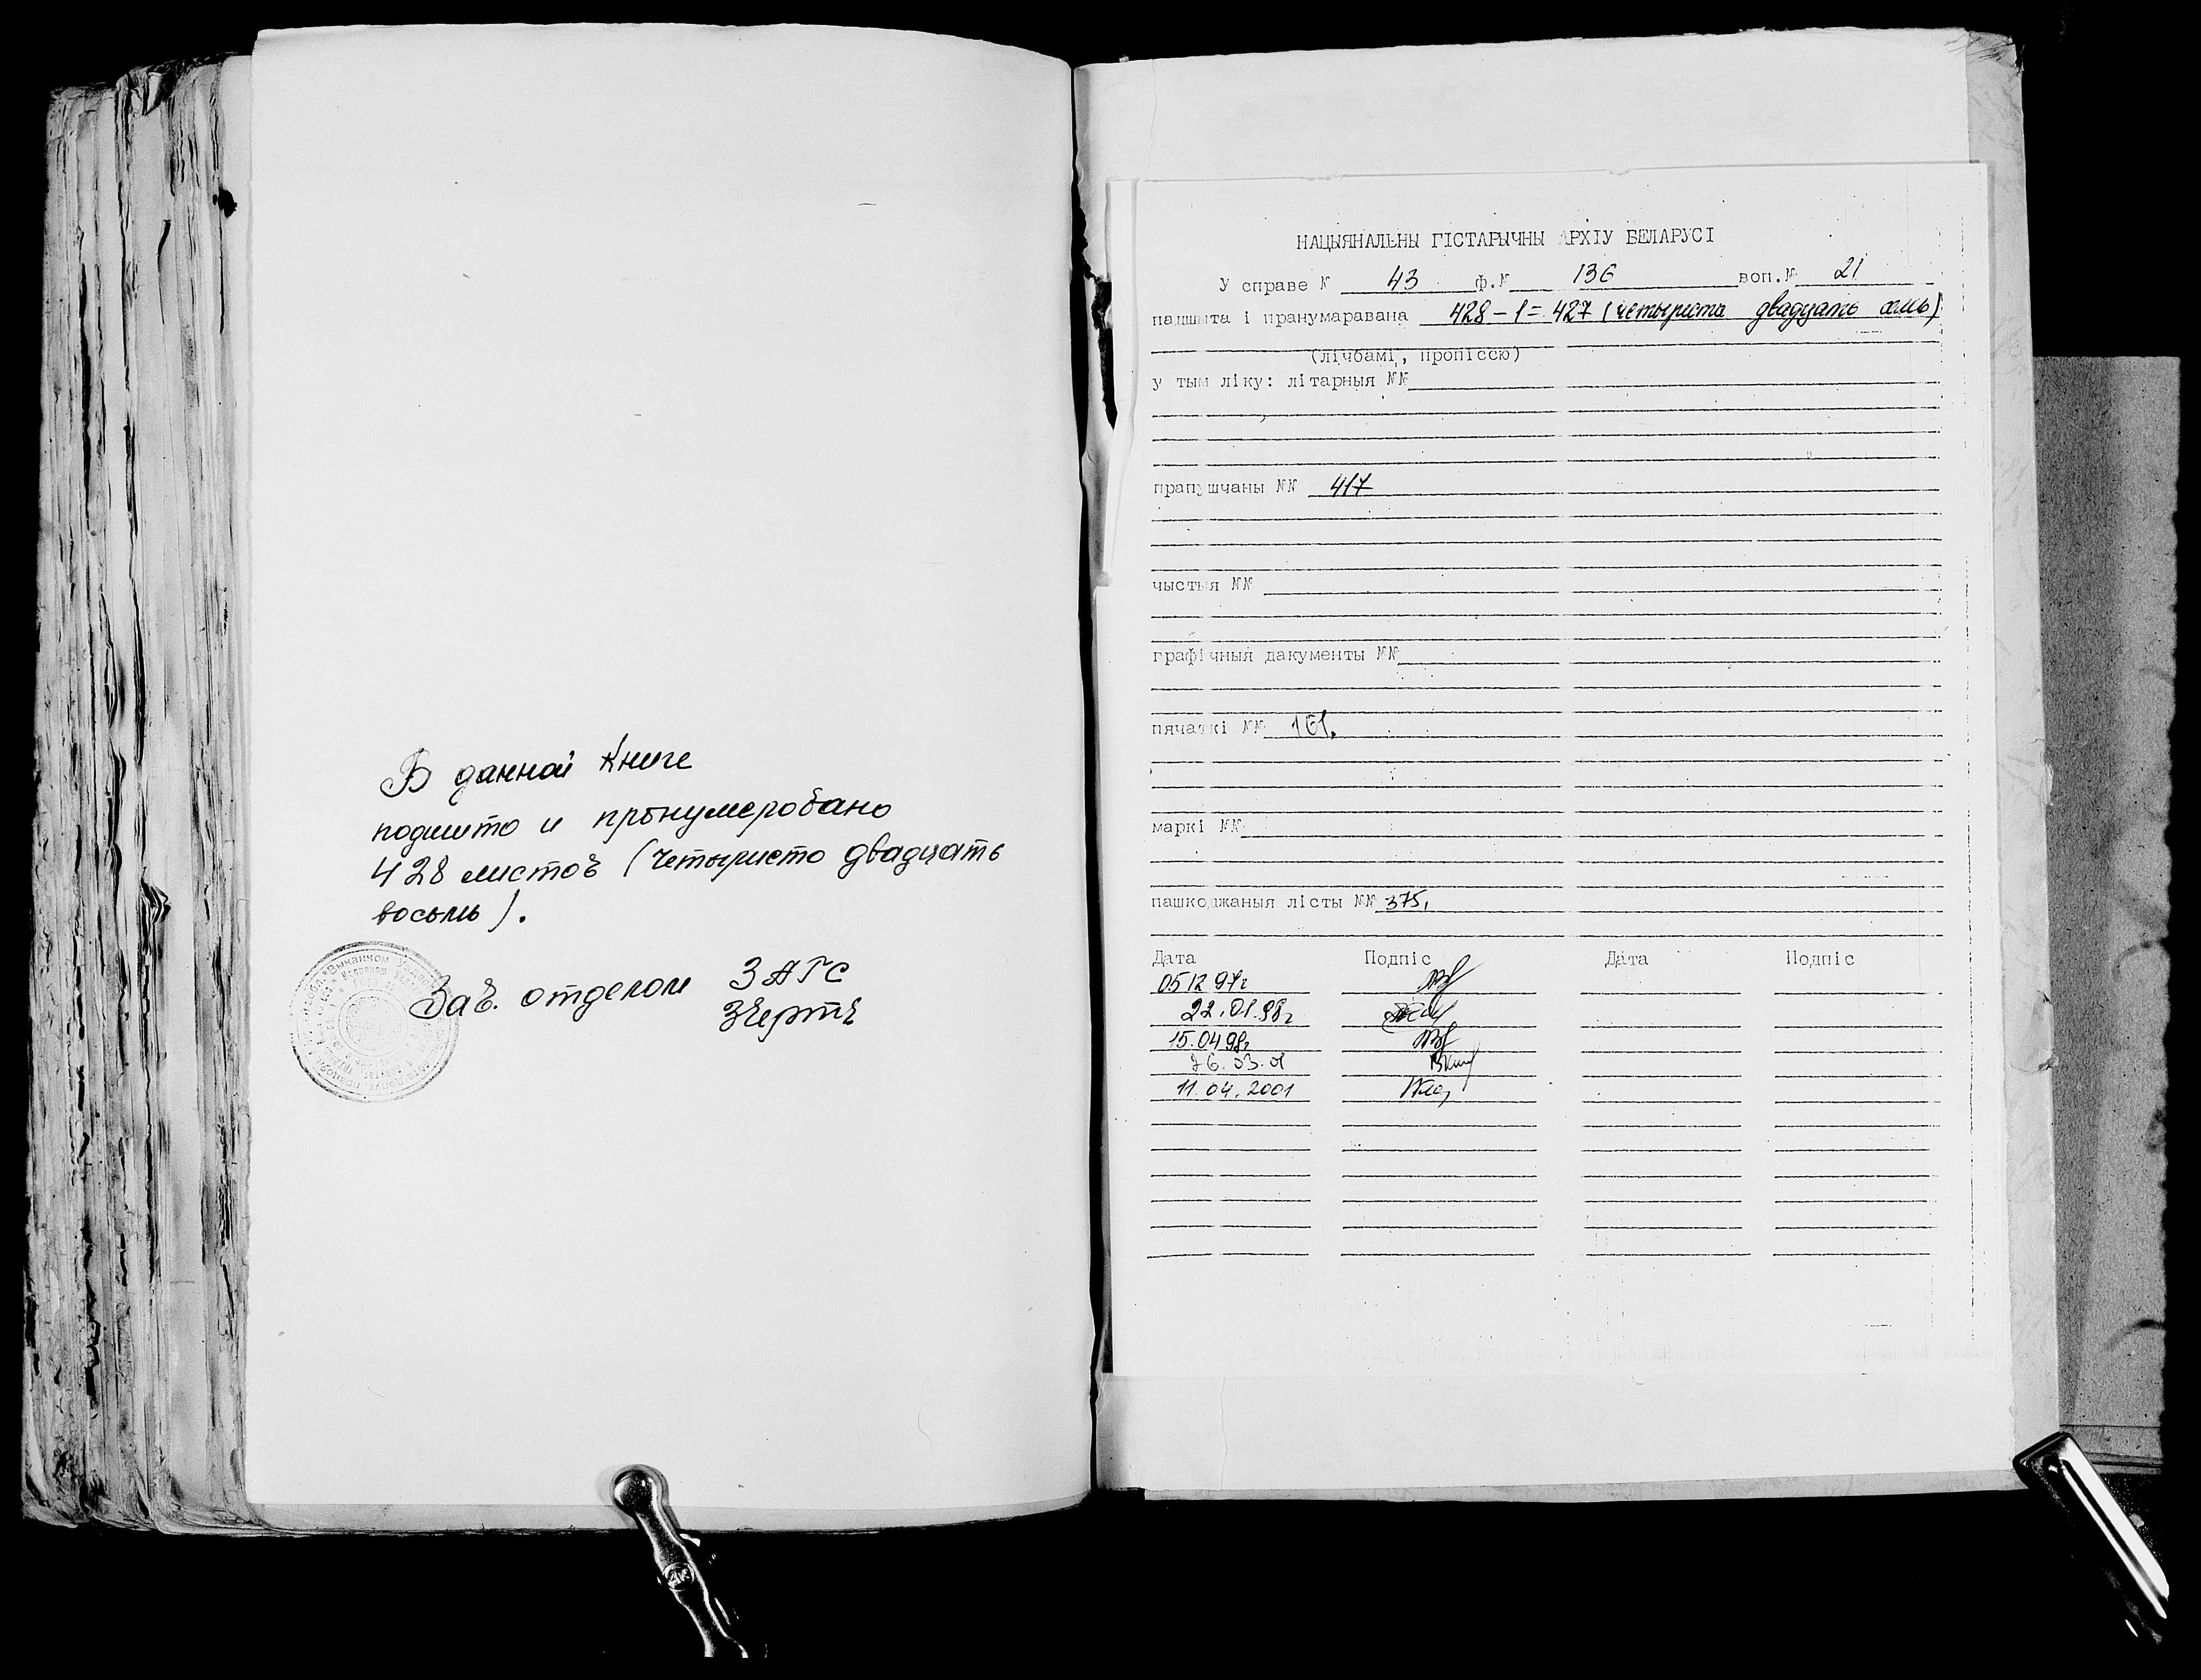 В данной книге
подшито и пронумеровано
428 листов (четыристо двадцать
восемь).
Зав. отделом ЗАГС
НАЦЫЯНАЛЬНЫ ГІСТАРЫЧНЫ АРХІУ БЕЛАРУСІ
У справе № 43 ф.№ 136 воп.№ 21
падшыта і пранумаравана 428-1=427 (четыриста двадцать семь)
(лічбамі, пропіссю)
у тым ліку: літарныя №№
прапушчаны №№ 417
чыстыя №№
графічныя дакументы №№
пячаткі №№ 161.
маркі №№
пашкоджаныя лісты №№ 375,
Дата Подпіс Дата Подпіс
05 12 97г
22.01.98г
15.04 98г
26.03.01
11.04.2001